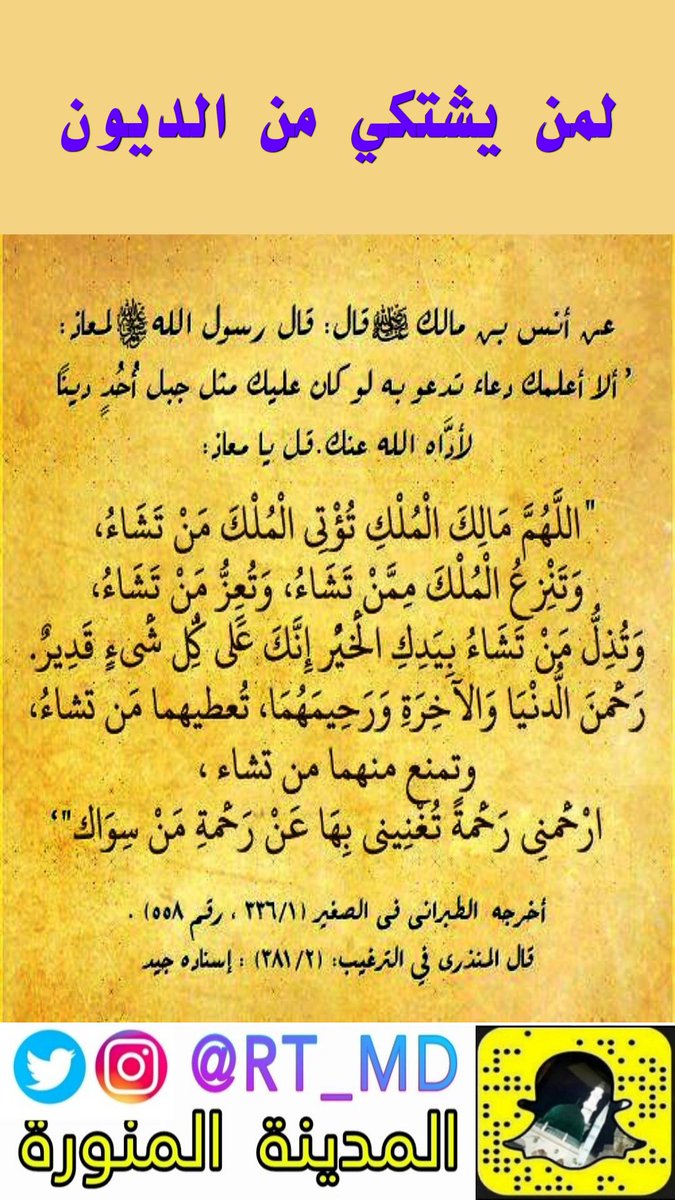 لمن يشتكي من الديون
عن أنس بن مالك ﷺ قال: قال رسول الله ﷺ لمعاذ:
'ألا أعلمك دعاء تدعو به لو كان عليك مثل جبل أُحُدٍ دينًا
لأدَّاه الله عنك. قل يا معاذ:
"اللَّهُمَّ مَالِكَ الْمُلْكِ تُؤْتِى الْمُلْكَ مَنْ تَشَاءُ،
وَتَنْزِعُ الْمُلْكَ مِمَّنْ تَشَاءُ، وَتُعِزُّ مَنْ تَشَاءُ،
وَتُذِلُّ مَنْ تَشَاءُ بِيَدِكِ الْخَيْرُ إِنَّكَ عَلَى كُلِّ شَىْءٍ قَدِيرٌ.
رَحْمنَ الدُّنْيَا وَالآخِرَةِ وَرَحِيمَهُمَا، تُعطيهما مَن تشاءُ،
وتمنع منهما من تشاء ،
ارْحَمْنِى رَحْمَةً تُغْنِينِى بِهَا عَنْ رَحْمَةِ مَنْ سِوَاك"'
أخرجه الطبرانى فى الصغير (٣٣٦/١ ، رقم ٥٥٨) .
قال المنذرى في الترغيب: (٣٨١/٢) : إسناده جيد
@RT_MD
المدينة المنورة